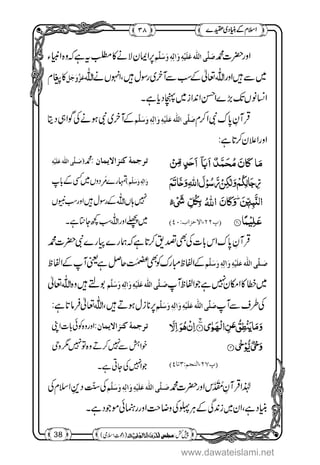 اسلام کے بنیادی عقیدے ۳۸
اور حضرت محمد صَلَّی اللہُ عَلَیْہِ وَاٰلِہٖ وَسَلَّم پر ایمان لانے کا مطلب یہ ہے کہ وہ انبیاء
میں سے ہیں اور اللہ تعالٰی کے سب سے آخری رسول ہیں، انہوں نے اللہ عَزَّوَجَلَّ کا پیغام
انسانوں تک بڑے احسن انداز میں پہنچا دیا ہے۔
قرآنِ پاک نبی اکرم صَلَّی اللہُ عَلَیْہِ وَاٰلِہٖ وَسَلَّم کے آخری نبی ہونے کی یوں گواہی دیتا
اور اعلان کرتا ہے:
مَا كَانَ مُحَمَّدٌ اَبَاۤ اَحَدٍ مِّنْ
رِّجَالِكُمْ وَلٰكِنْ رَّسُوْلَ اللّٰهِ وَخَاتَمَ
النَّبِیّٖنَ ؕ وَكَانَ اللّٰهُ بِكُلِّ شَیْءٍ
عَلِیْمًا
(پ۲۲، الاحزاب: ۴۰)
ترجمۂ کنز الایمان: محمّد (صَلَّی اللہُ عَلَیْہِ
وَاٰلِہٖ وَسَلَّم) تمہارے مَردوں میں کسی کے باپ
نہیں ہاں اللہ کے رسول ہیں اور سب نبیوں
میں پچھلے اور اللہ سب کچھ جانتا ہے۔
قرآنِ پاک اس بات کی بھی تصدیق کرتا ہے کہ ہمارے پیارے نبی حضرت محمد
صَلَّی اللہُ عَلَیْہِ وَاٰلِہٖ وَسَلَّم کے الفاظ مبارک کو بھی عصمت حاصل ہے یعنی آپ کے الفاظ
میں خطا کا امکان نہیں ہے جو الفاظ آپ صَلَّی اللہُ عَلَیْہِ وَاٰلِہٖ وَسَلَّم بولتے ہیں وہ اللہ تعالٰی
کی طرف سے آپ صَلَّی اللہُ عَلَیْہِ وَاٰلِہٖ وَسَلَّم پر نازل ہوتے ہیں، اللہ تعالٰی فرماتا ہے:
وَمَا یَنْطِقُ عَنِ الْهَوٰى اِنْ هُوَ اِلَّا
وَحْیٌ یُّوْحٰى
(پ۲۷، النجم: ۳ تا ۴)
ترجمۂ کنز الایمان: اور وہ کوئی بات اپنی
خواہش سے نہیں کرتے وہ تو نہیں مگر وحی
جو انہیں کی جاتی ہے۔
لہٰذا قرآنِ مُقَدَّس اور حضرت محمد صَلَّی اللہُ عَلَیْہِ وَاٰلِہٖ وَسَلَّم کی سنّت دینِ اسلام کی
بنیاد ہے، ان میں زندگی کے ہر پہلو کی وضاحت اور راہنمائی موجود ہے۔
38
www.dawateislami.net